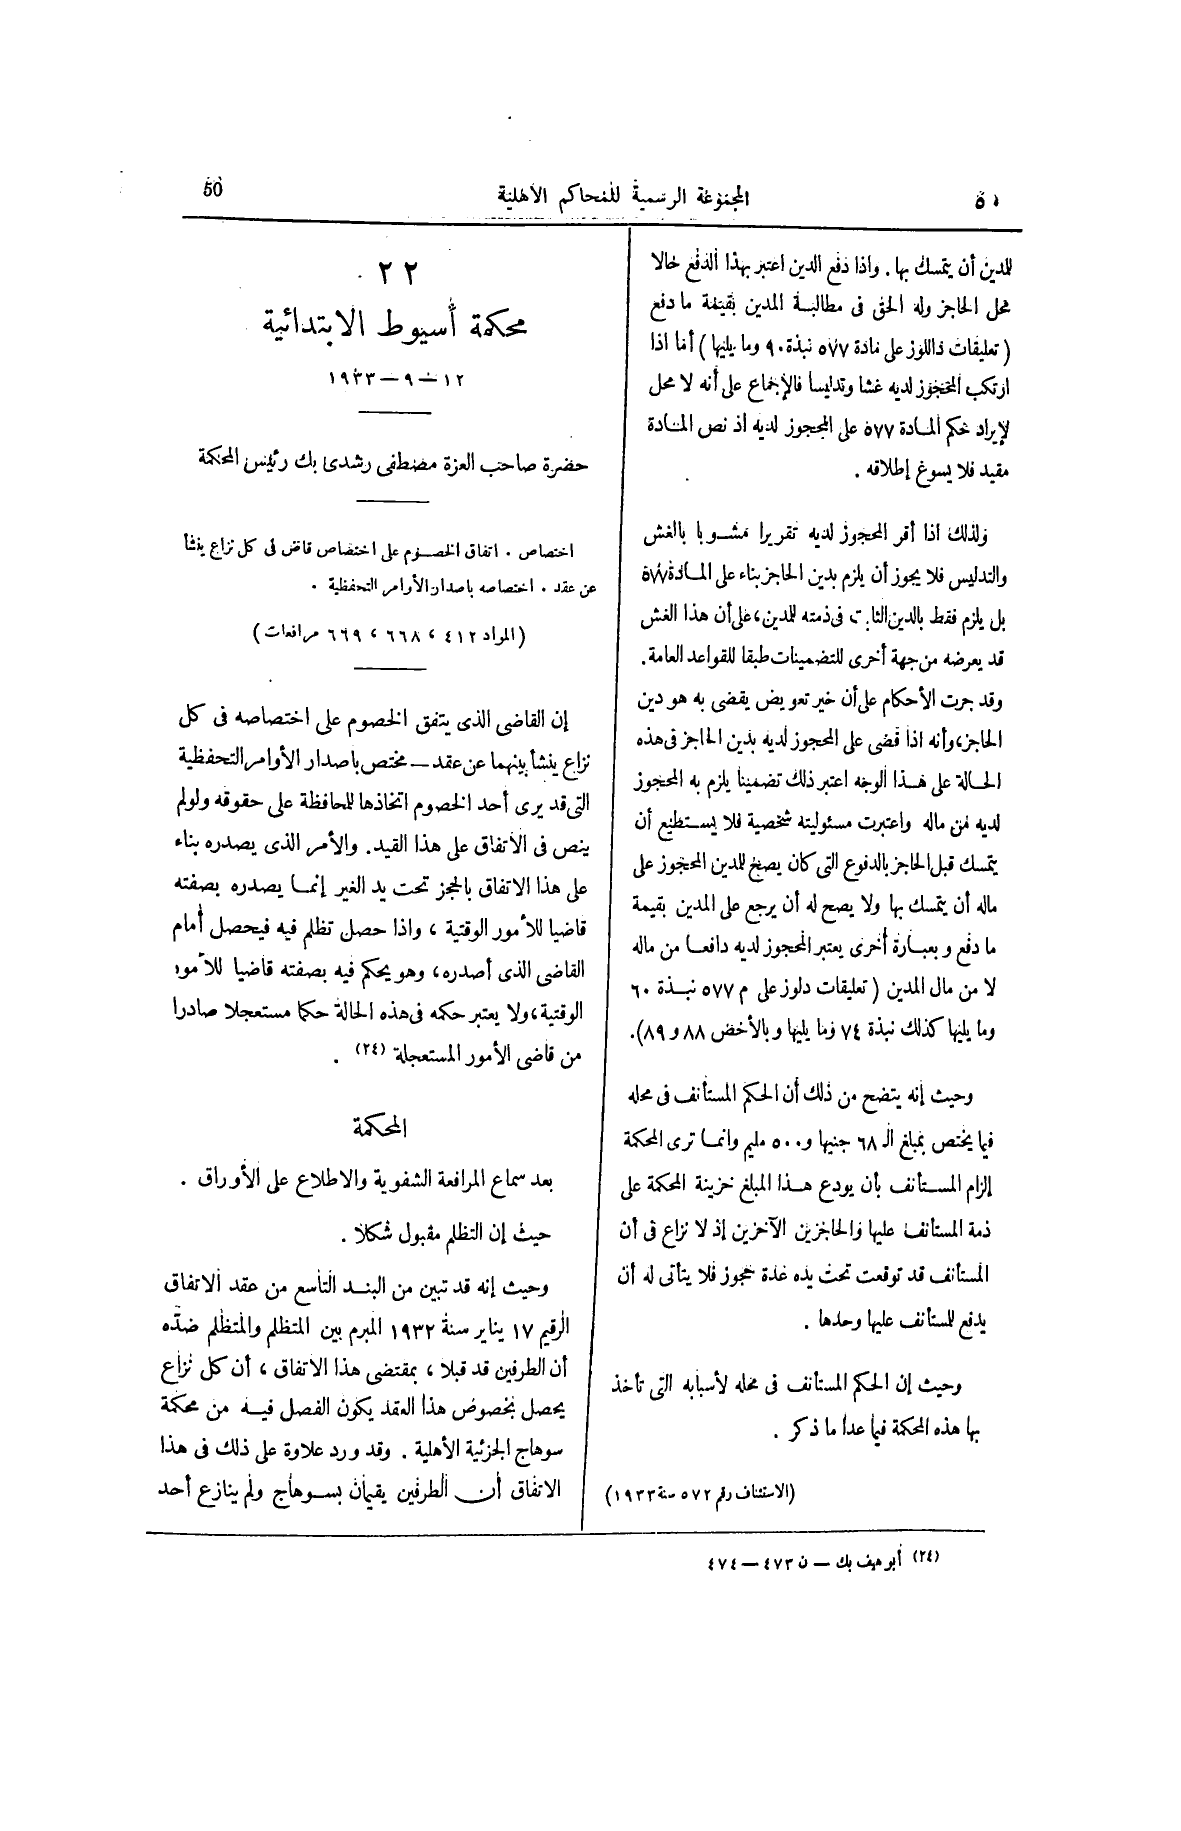 ٥٠
المجموعة الرسمية للمحاكم الأهلية
50
للمدين أن يتمسك بها . واذا دفع الدين اعتبر بهذا الدفع حالا
محل الحاجز وله الحق فى مطالبة المدين بقيمة ما دفع
( تعليقات داللوز على مادة ٥٧٧ نبذة ٩٠ وما يليها ) أما اذا
ارتكب المحجوز لديه غشا وتدليسا فالإجماع على أنه لا محل
لإيراد حكم المادة ٥٧٧ على المحجوز لديه اذ نص المادة
مقيد فلا يسوغ إطلاقه .
ولذلك اذا أقر المحجوز لديه تقريرا مشوبا بالغش
والتدليس فلا يجوز أن يلزم بدين الحاجز بناء على المادة ٥٧٧
بل يلزم فقط بالدين الثابت فى ذمته للمدين، على أن هذا الغش
قد يعرضه من جهة أخرى للتضمينات طبقا للقواعد العامة .
وقد جرت الأحكام على أن خير تعويض يقضى به هو دين
الحاجز، وأنه اذا قضى على المحجوز لديه بدين الحاجز فى هذه
الحالة على هذا الوجه اعتبر ذلك تضمينا يلزم به المحجوز
لديه من ماله واعتبرت مسئوليته شخصية فلا يستطيع أن
يتمسك قبل الحاجز بالدفوع التى كان يصح للمدين المحجوز على
ماله أن يتمسك بها ولا يصح له أن يرجع على المدين بقيمة
ما دفع وبعبارة أخرى يعتبر المحجوز لديه دافعا من ماله
لا من مال المدين ( تعليقات دلوز على م ٥٧٧ نبذة ٦٠
وما يليها كذلك نبذة ٧٤ وما يليها وبالأخص ٨٨ و ٨٩).
وحيث إنه يتضح من ذلك أن الحكم المستأنف فى محله
فيما يختص بمبلغ الـ ٦٨ جنيها و٥٠٠ مليم وانما ترى المحكمة
إلزام المستأنف بأن يودع هذا المبلغ خزينة المحكمة على
ذمة المستأنف عليها والحاجزين الآخرين إذ لا نزاع فى أن
المستأنف قد توقعت تحت يده عدة حجوز فلا يتأتى له أن
يدفع للمستأنف عليها وحدها .
وحيث إن الحكم المستأنف فى محله لأسبابه التى تأخذ
بها هذه المحكمة فيما عدا ما ذكر .
(الاستئناف رقم ٥٧٢ سنة ١٩٣٣)
٢٢
محكمة أسيوط الابتدائية
١٢ – ٩ – ١٩٣٣
حضرة صاحب العزة مصطفى رشدى بك رئيس المحكمة
اختصاص . اتفاق الخصوم على اختصاص قاض فى كل نزاع ينشأ
عن عقد . اختصاصه باصدار الأوامر التحفظية .
(المواد ٤١٢ ، ٦٦٨ ، ٦٦٩ مرافعات)
إن القاضى الذى يتفق الخصوم على اختصاصه فى كل
نزاع ينشأ بينهما عن عقد – مختص باصدار الأوامر التحفظية
التى قد يرى أحد الخصوم اتخاذها للمحافظة على حقوقه ولو لم
ينص فى الاتفاق على هذا القيد. والأمر الذى يصدره بناء
على هذا الاتفاق بالحجز تحت يد الغير إنما يصدره بصفته
قاضيا للأمور الوقتية ، واذا حصل تظلم فيه فيحصل أمام
القاضى الذى أصدره، وهو يحكم فيه بصفته قاضيا للأمور
الوقتية، ولا يعتبر حكمه فى هذه الحالة حكما مستعجلا صادرا
من قاضى الأمور المستعجلة (٢٤) .
المحكمة
بعد سماع المرافعة الشفوية والاطلاع على الأوراق .
حيث إن التظلم مقبول شكلا .
وحيث إنه قد تبين من البند التاسع من عقد الاتفاق
الرقيم ١٧ يناير سنة ١٩٣٢ المبرم بين المتظلم والمتظلم ضده
أن الطرفين قد قبلا ، بمقتضى هذا الاتفاق ، أن كل نزاع
يحصل بخصوص هذا العقد يكون الفصل فيه من محكمة
سوهاج الجزئية الأهلية . وقد ورد علاوة على ذلك فى هذا
الاتفاق أن الطرفين يقيمان بسوهاج ولم ينازع أحد
(٢٤) أبو هيف بك – ن ٤٧٣ – ٤٧٤